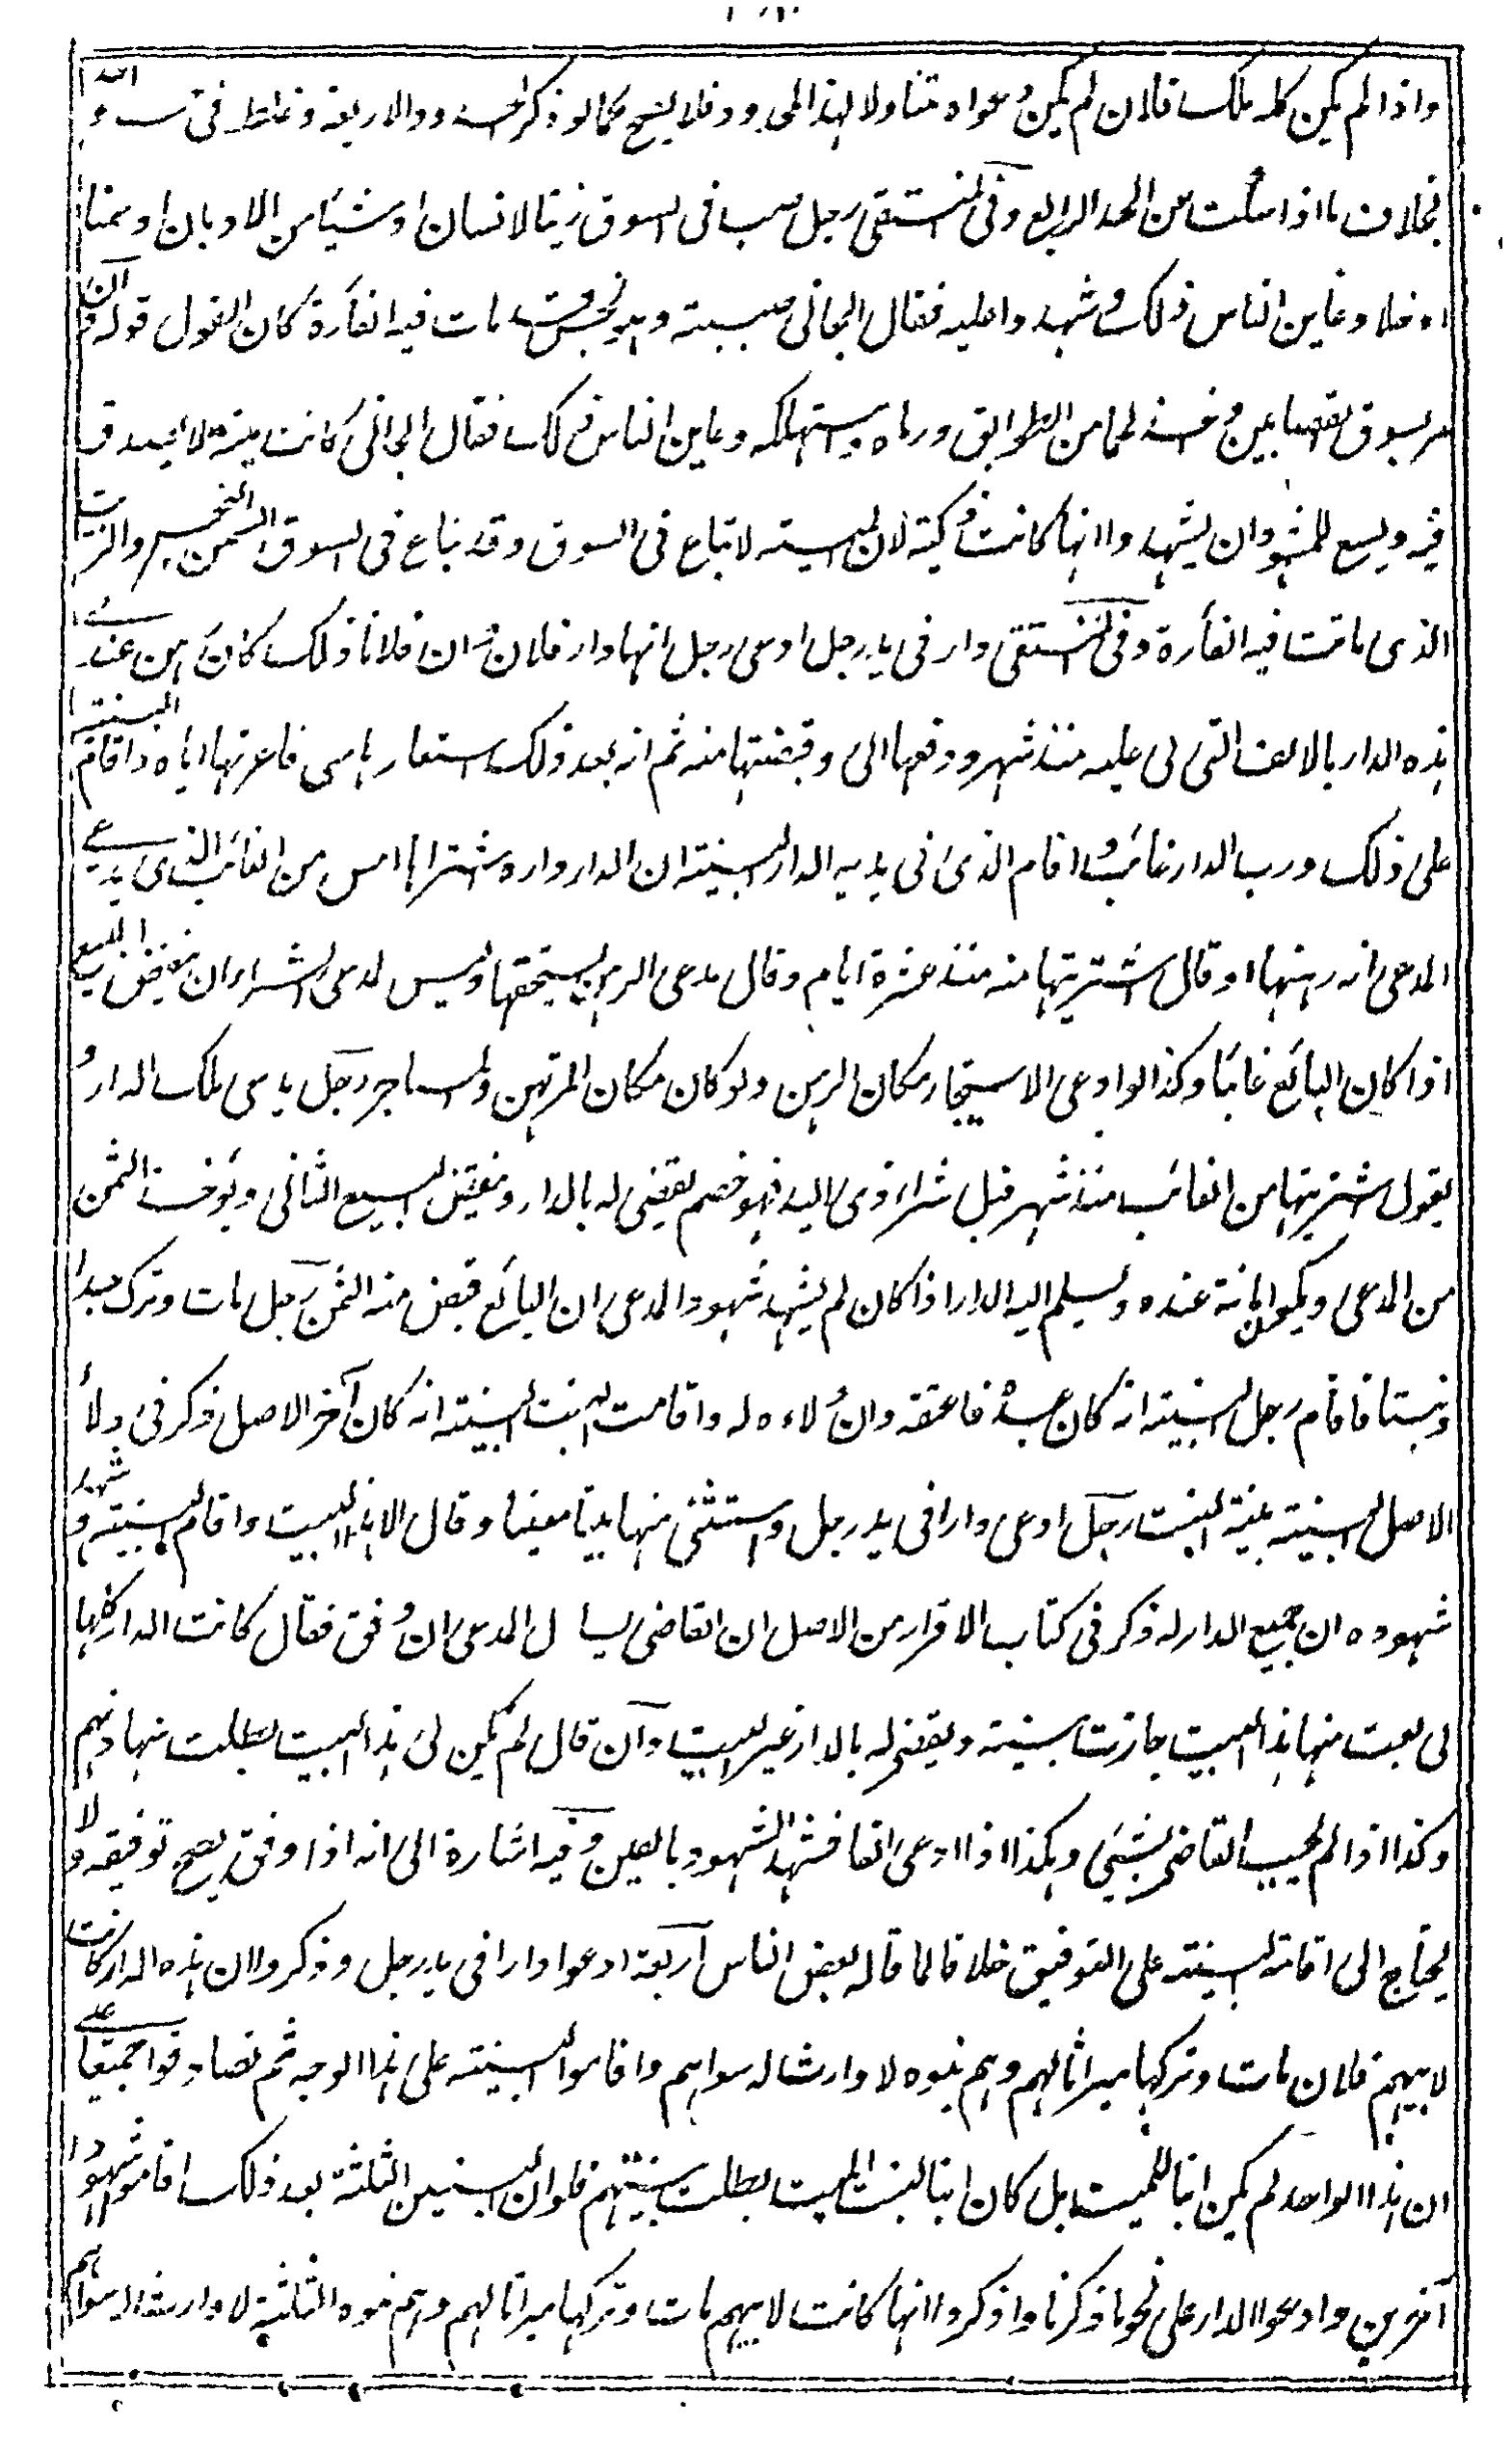 واذا لم يكن كله ملك فلان لم يكن دعواه متناولا لهذا المحدود فلا يصح كما لو ذكر الحدود الاربعة وغلط في
بخلاف ما اذا سكت عن الحد الرابع وفي المنتقى رجل صب في السوق زيتا لانسان او شيئا من الادهان او سمنا
او خلا وعاين الناس ذلك وشهدوا عليه فقال الجاني صببته وهو نجس قد مات فيه الفأرة كان القول قوله وان
مر بسوق القصابين واخذ لحما من الطوابق ورماه واستهلكه وعاين الناس ذلك فقال الجاني كانت ميتة لا يصدق
فيه ويسع للشهود ان يشهدوا انها كانت ذكية لان الميتة لا تباع في السوق وقد يباع في السوق السمن النجس والزيت
الذى ماتت فيه الفأرة وفي المنتقى دار في يد رجل ادعى رجل انها دار فلان وان فلانا ذلك كان رهن عندي
هذه الدار بالالف التى لى عليه منذ شهر ودفعها الى وقبضتها منه ثم انه بعد ذلك استعارها منى فاعرتها اياه واقام البينة
على ذلك ورب الدار غائب واقام الذى فى يديه الدار البينة ان الدار داره اشتراها امس من الغائب الذى يدعى
المدعى انه رهنها او قال اشتريتها منه منذ عشرة ايام وقال مدعى الرهن يستحقها وليس لمدعى الشراء ان ينقض البيع
اذا كان البائع غائبا وكذا لو ادعى الاستيجار مكان الرهن ولو كان مكان المرتهن والمستاجر رجل يدعى ملك الدار و
يقول اشتريتها من الغائب منذ شهر قبل شراء ذى اليد فهو خصم يقضى له بالدار وينقض البيع الثانى ويؤخذ الثمن
من المدعى ويكون امانة عنده ويسلم اليه الدار اذا كان لم يشهد شهود المدعى ان البائع قبض منه الثمن رجل مات وترك عبدا
وبنتا فاقام رجل البينة انه كان عبده فاعتقه وان ولاءه له واقامت البنت البينة انه كان آخر الاصل ذكر فى ولاء
الاصل البينة بينة البنت رجل ادعى دارا فى يد رجل واستثنى منها بيتا معينا وقال الا هذا البيت واقام البينة وشهد
شهوده ان جميع الدار له ذكر فى كتاب الاقرار من الاصل ان القاضى يسأل المدعى ان وفق فقال كانت الدار كلها
لى بعت منها هذا البيت جازت بينة ويقضى له بالدار غير البيت وان قال لم يكن لى هذا البيت بطلت شهادتهم
وكذا اذا لم يجب القاضى بشئ وهكذا اذا ادعى الفا فشهد الشهود بالفين وفيه اشارة الى انه اذا وفق يصح توفيقه ولا
يحتاج الى اقامة البينة على التوفيق خلافا لما قاله بعض الناس اربعة ادعوا دارا فى يد رجل وذكروا ان هذه الدار كانت
لابيهم فلان مات وتركها ميراثا لهم وهم بنوه لا وارث له سواهم واقاموا البينة على هذا الوجه ثم تصادقوا جميعا على
ان هذا الواحد لم يكن ابنا للميت بل كان ابنا لبنت الميت بطلت بينتهم فلو ان البنين الثلثة بعد ذلك اقاموا شهودا
آخرين وادعوا الدار على نحو ما ذكرنا وذكروا انها كانت لابيهم مات وتركها ميراثا لهم وهم بنوه الثلثة لا وارث له سواهم